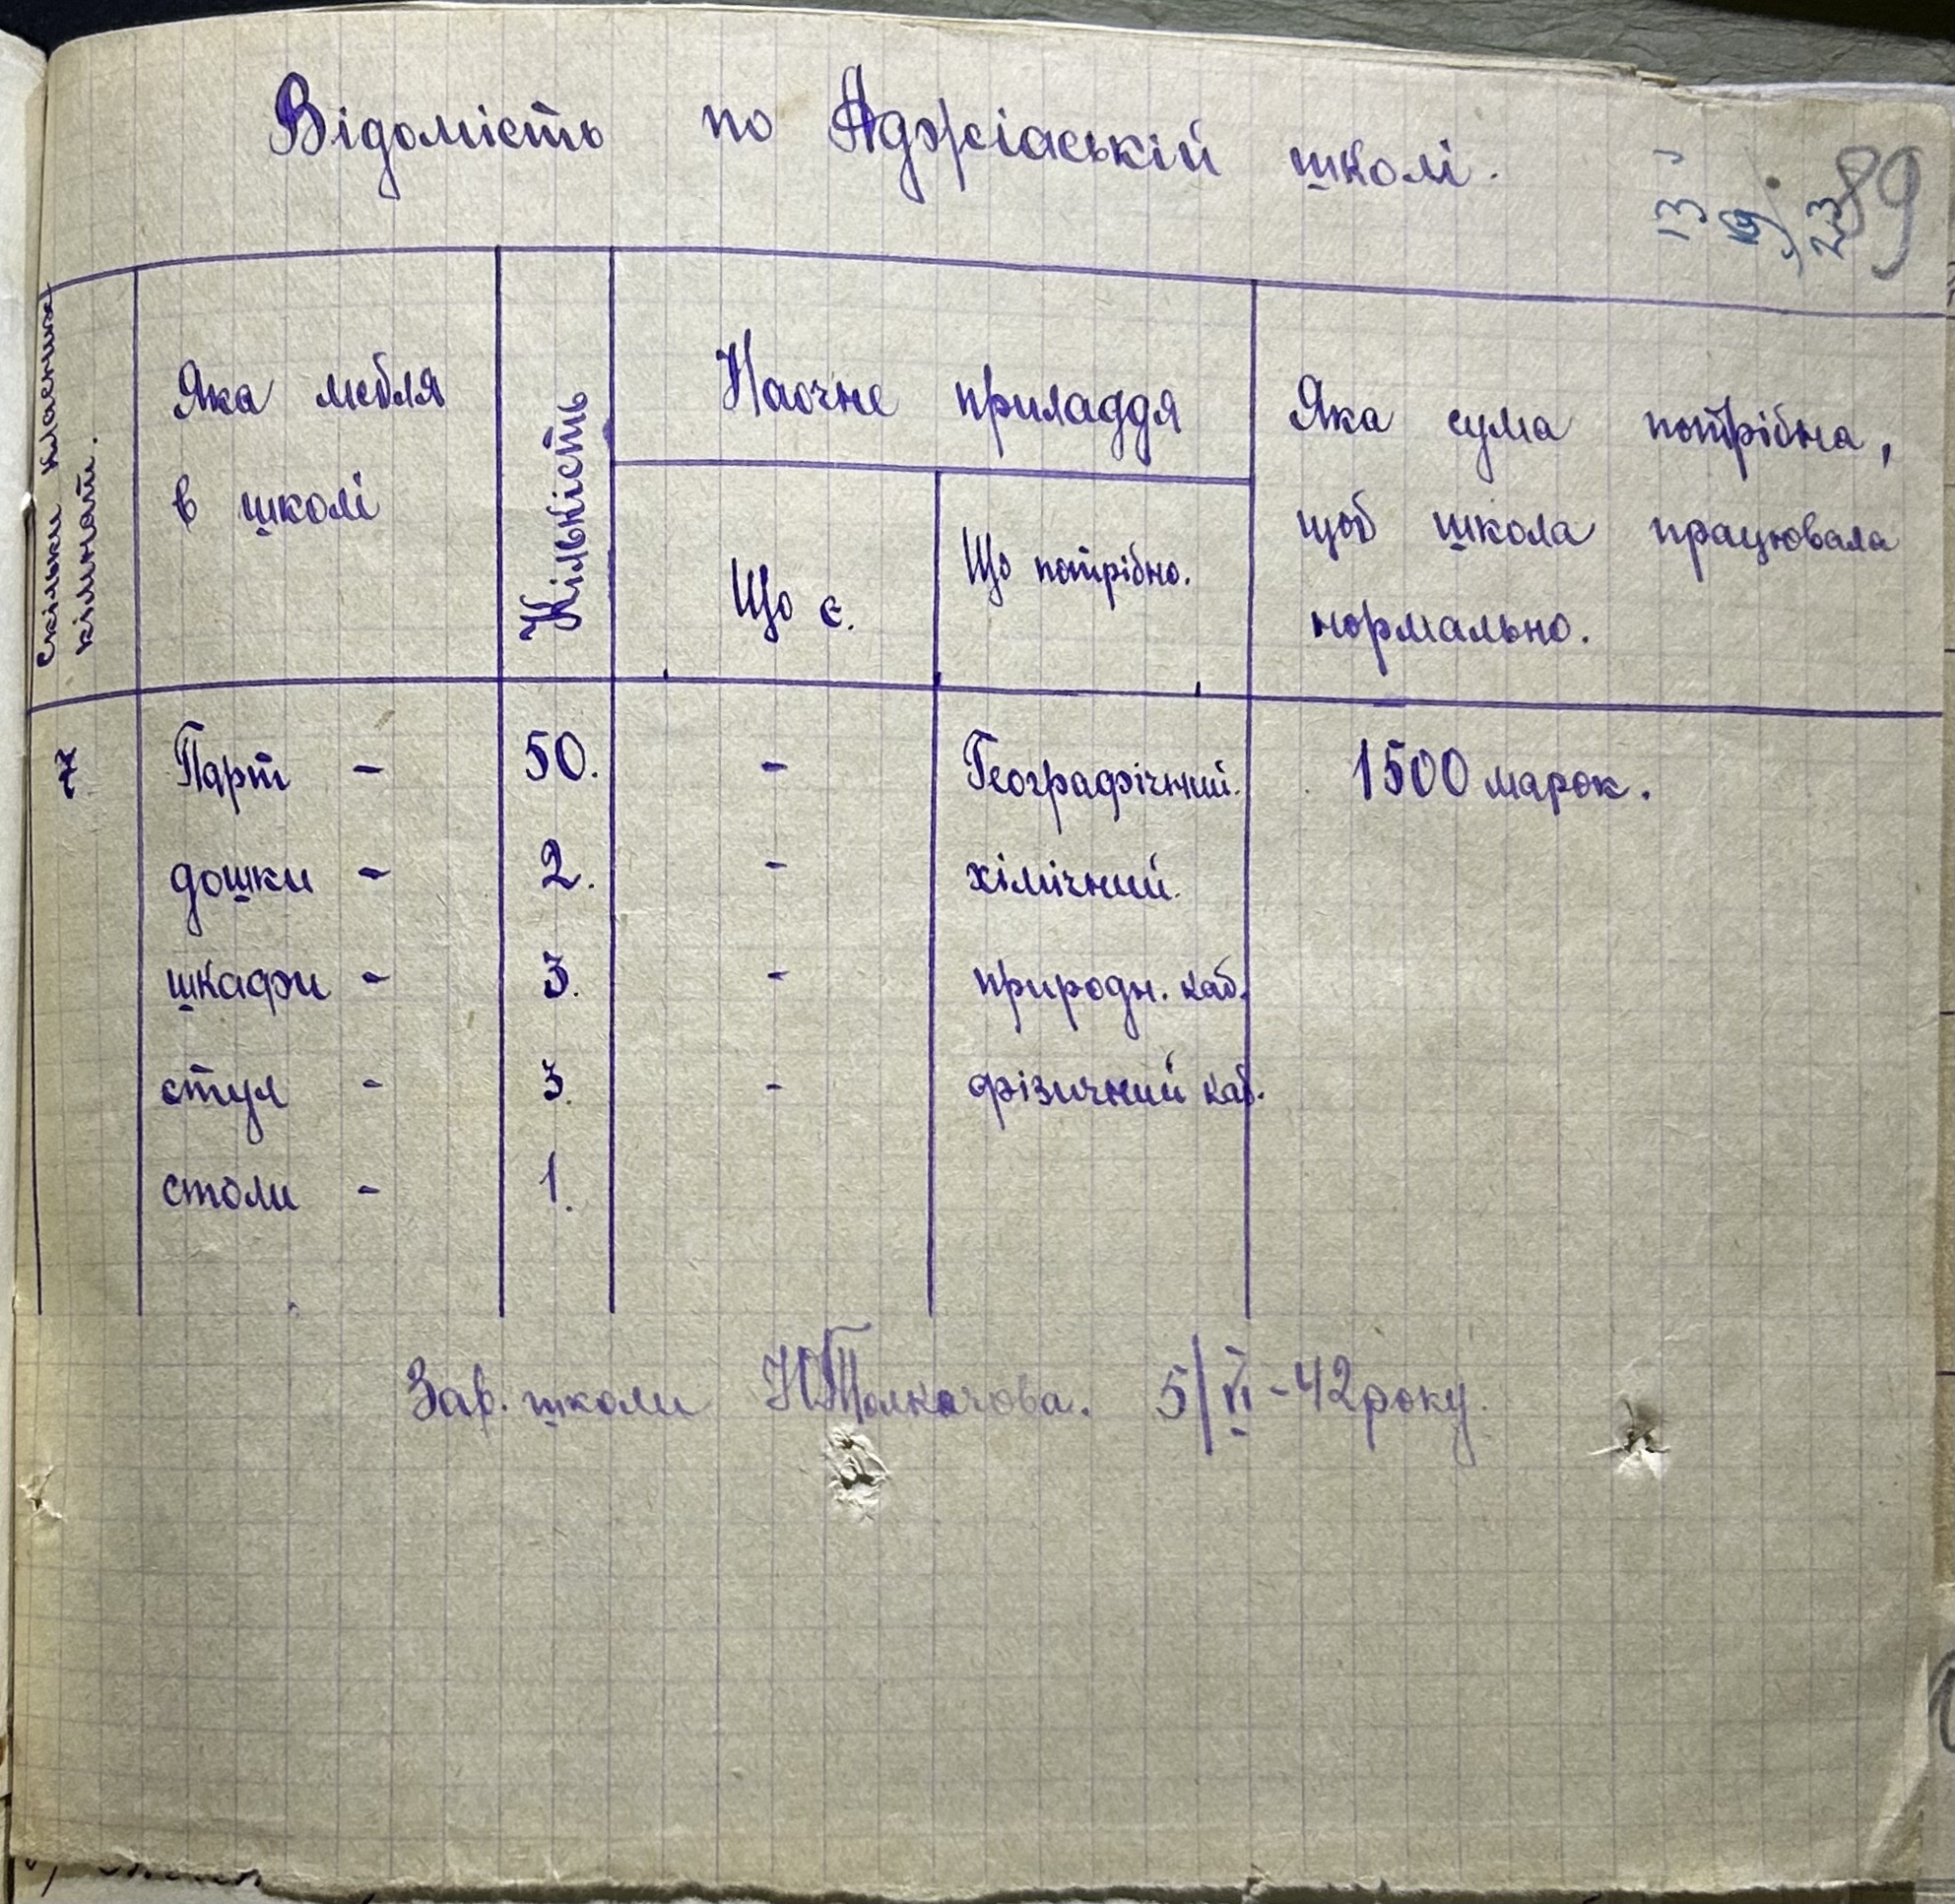 Відомість по Аджіаській школі.
89
13
19
23
Скільки класених
кімнат.
Яка мебля
в школі
Кількість
Наочне приладдя
Що є.
Що потрібно.
Яка сума потрібна,
щоб школа працювала
нормально.
7 Парт - 50. - Географічний. 1500 марок.
дошки - 2. - хімічний.
шкафи - 3. - природн. каб.
стул - 3. - фізичний каб.
столи - 1.
Зав. школи Н Толкачова. 5/VI-42 року.